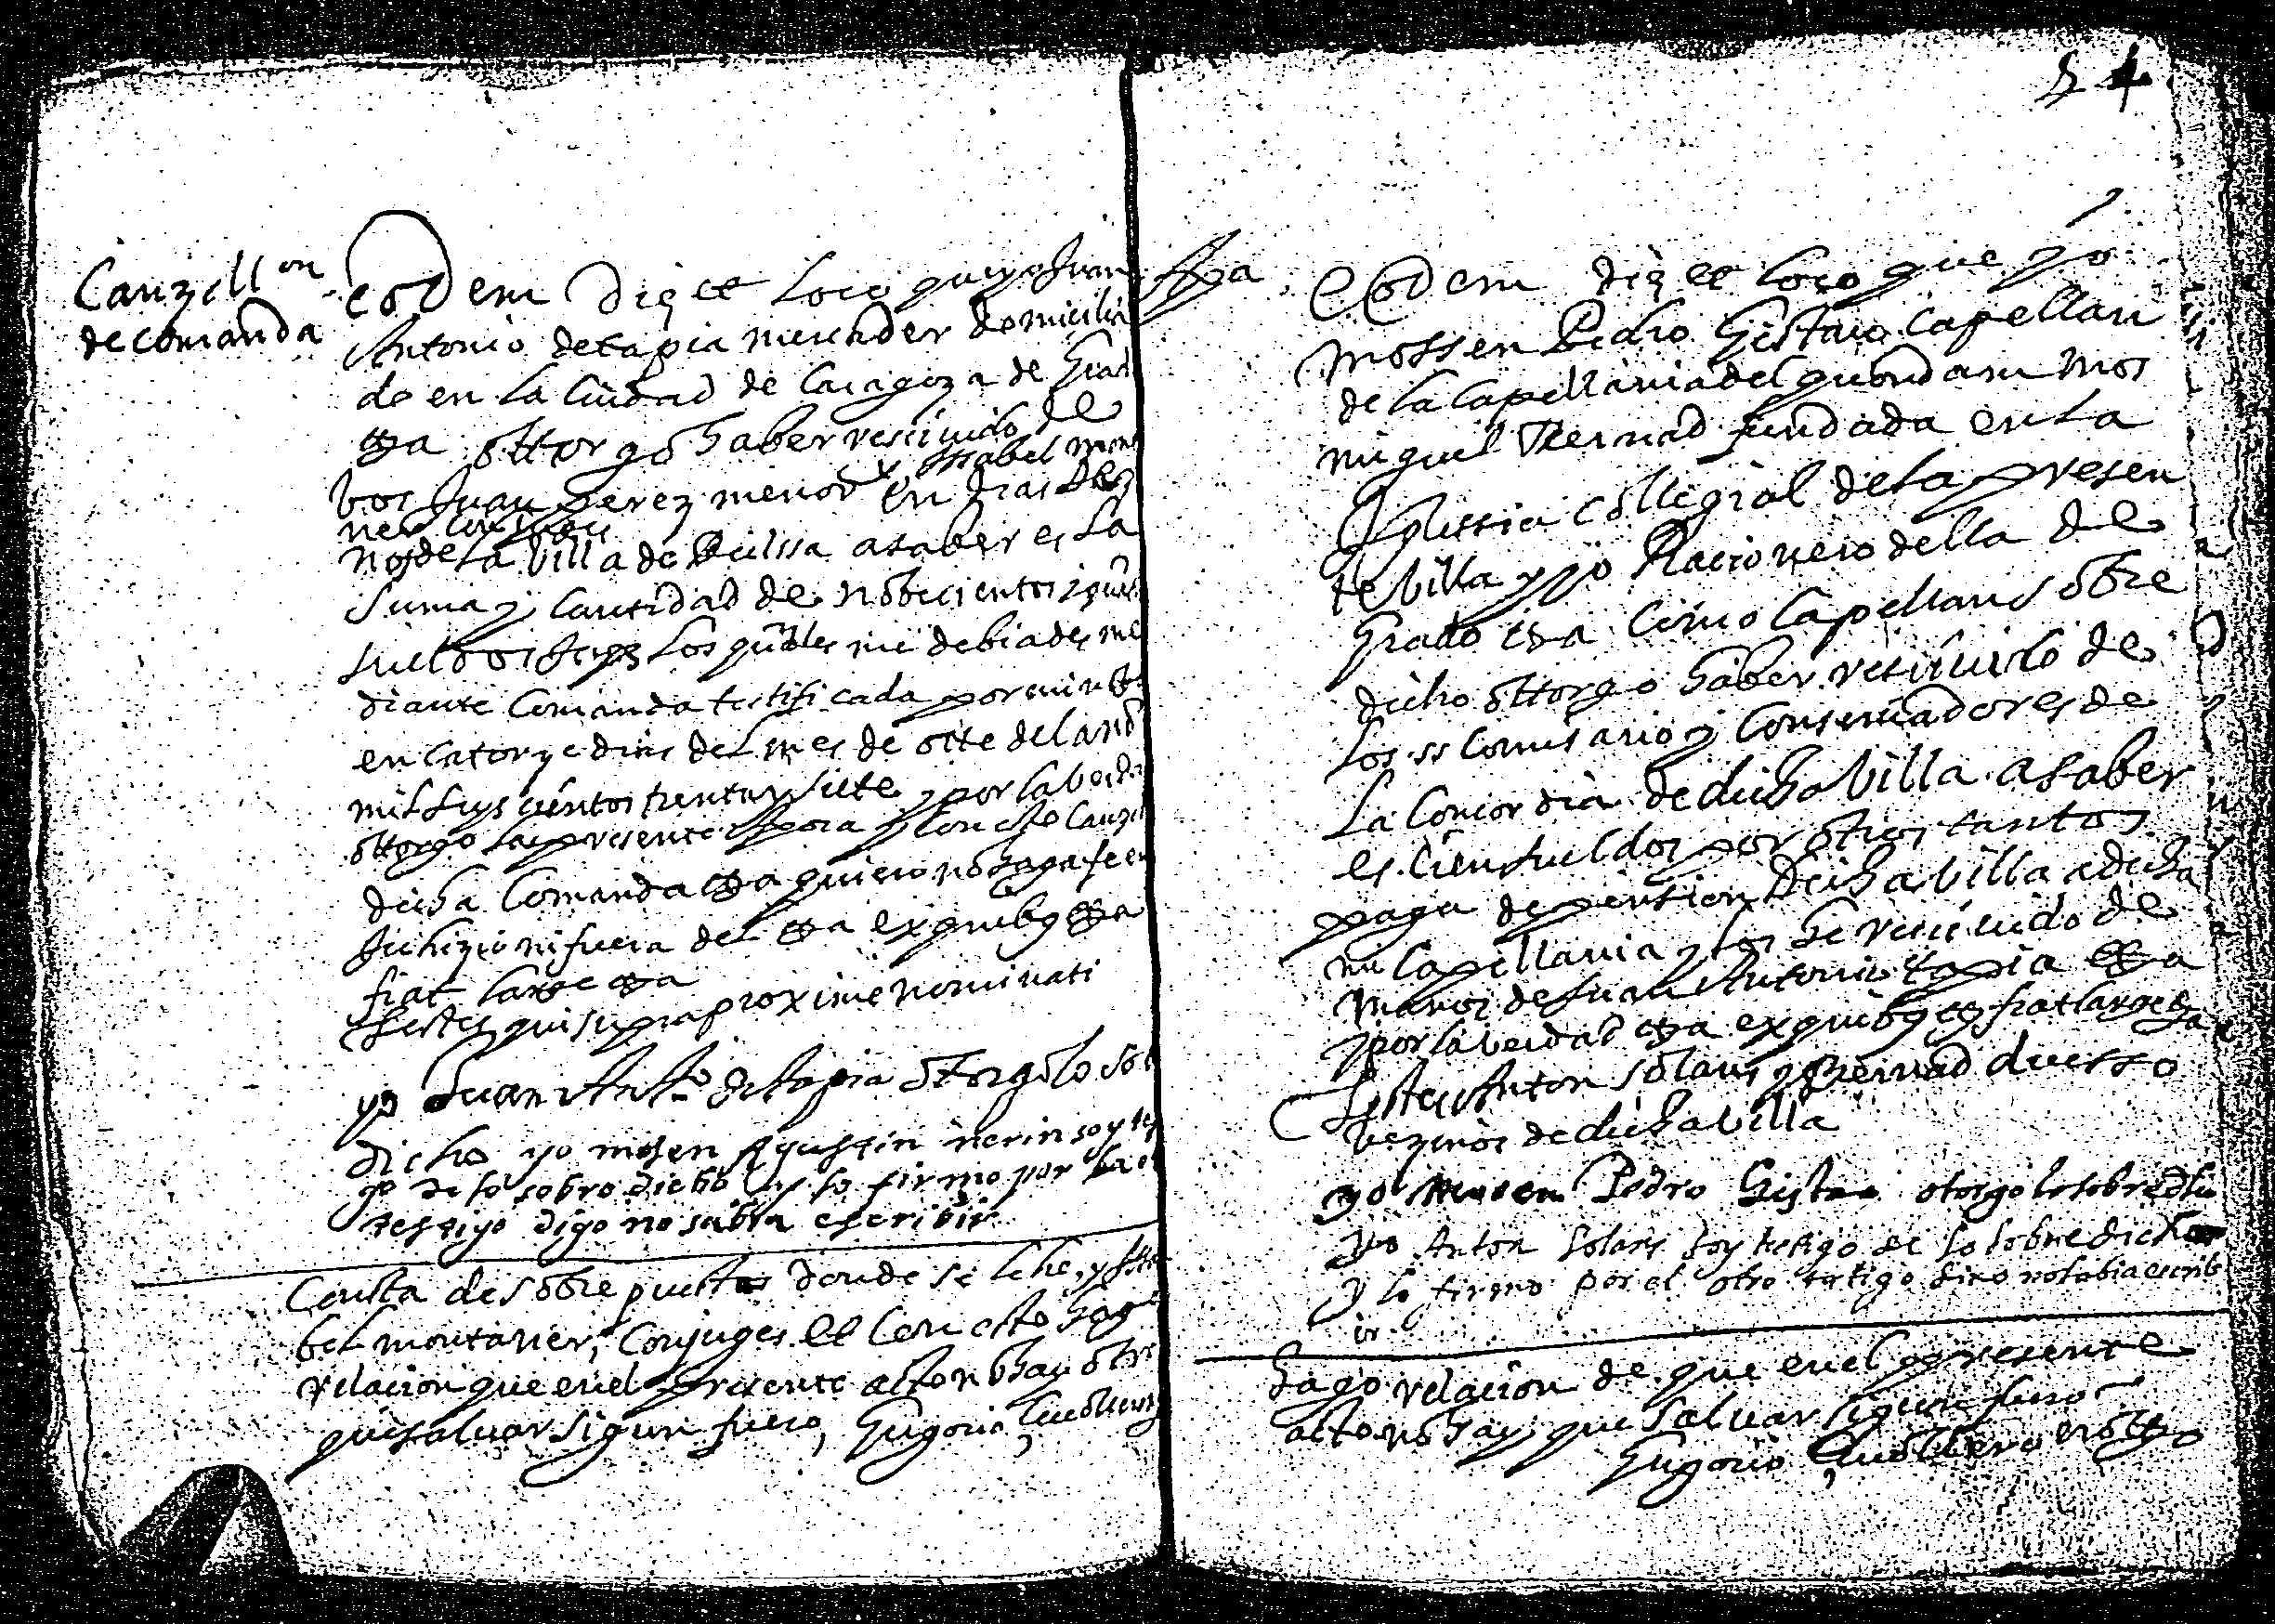 Canzell.on
de comanda
Eodem die et loco que yo Juan
Antonio de tapia mercader domicilia
do en la Ciudad de Caragoza de Grad
etta ottorgo haber resciuido de
bos Juan perez menor y Issabel mont
ner Conjuges en dias bez
nos de la Villa de Buissa a saber es la
suma y cantidad de nobecientos y
sueldos los quales me debiades me
diante Comanda testificada por mi nott
en catorze dias del mes de otte del año
mil seys cientos trenta y siete y por la berda
ottorgo la presente Apoca y con esto Canze
dicha Comanda etta quiero no haga fe en
Juhizio ni fuera del etta ex quibus etta
fiat large etta
testes qui supra proxime nominati
yo Juan Ant.o de tapia otorgo lo sob
dicho yo mosen Agustin nerin soy tes
go de lo sobredicho y lo firmo por la ot
testigo digo no sabia escribir
Consta de sobrepuesto donde se lehe, y Issa
bel montaner, Conjuges et con esto hago
relacion que en el presente acto no hay otro
que saluar sigun fuero, Gregorio

54
Apa
Eodem die et loco que yo
mossen Pedro Gistau Capellan
de la Capellania del quondam mos
miguel Bernad fundada en la
Iglessia collegial de la presen
te Villa y yo Racionero della de
Grado etta como Capellan sobre
dicho ottorgo haber resciuido de
los ss Comisario y Conseruadores de
la Concordia de dicha Villa a saber
es. Cien sueldos por otros tantos
paga de pension dicha Villa a dicha
mi Capellania y los he resciuido de
manos de Juan Antonio tapia etta
y por la berdad etta ex quibus et fiat large etta
Testes Anton Solans y Bernad duerso
bezinos de dicha Villa
yo mosen Pedro Gistau otorgo lo sobredhi
yo Anton Solans soy testigo de lo sobredicho
y lo firmo por el otro testigo dixo no sabia escrib
ir
hago relacion de que en el presente
acto no hay que saluar sigun fuero
Gregorio nott.o